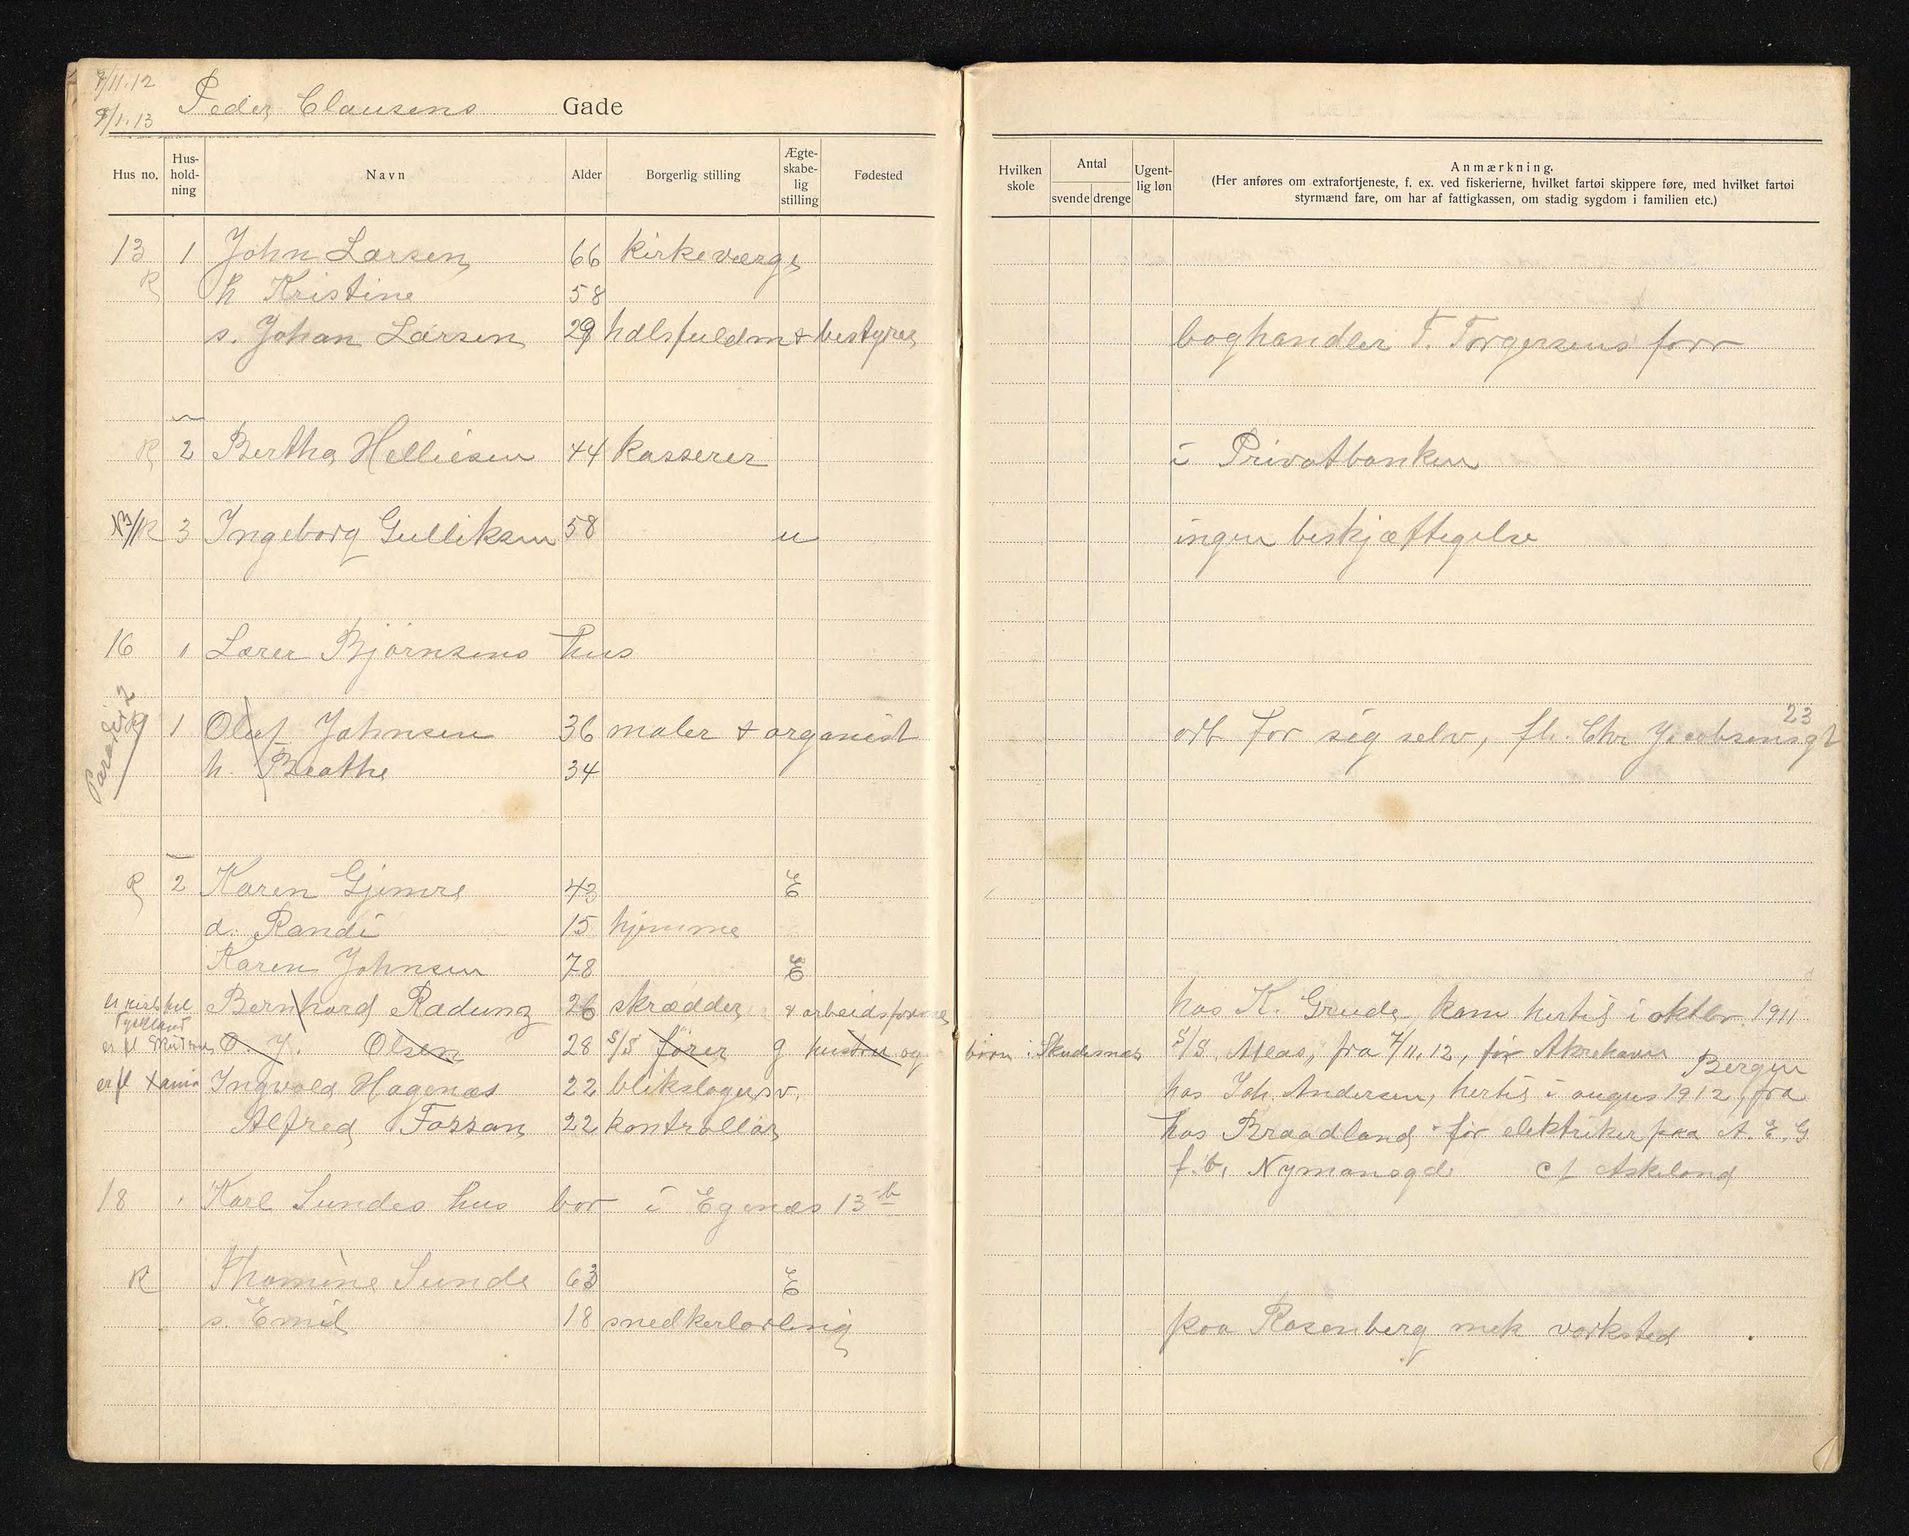 7/11.12
9/1.13
Peder Clausens Gade
Hus no. Hus-hold-ning Navn Alder Borgerlig stilling Ægte-skabe-lig stilling Fødested Hvilken skole Antal svende drenge Ugent-lig løn Anmærkning.
(Her anføres om extrafortjeneste, f. ex. ved fiskerierne, hvilket fartøi skippere føre, med hvilket fartøi
styrmænd fare, om har af fattigkassen, om stadig sygdom i familien etc.)
13 1 John Larsen 66 kirkeværge
R h Kristine 58
s. Johan Larsen 29 hdlsfuldm + bestyrer boghandler F. Torgersens forr
R 2 Bertha Helliesen 44 kasserer i Privatbanken
R 3 Ingeborg Gulliksen 58 u ingen beskjæftigelse
16 1 Lærer Bjørnsens hus
R 1 Oluf Johnsen 36 maler + organist arb for sig selv, fl. Chr Jacobsensgt 23
Paradisv
h. Beathe 34
R 2 Karen Gjemre 43 E
d. Randi 15 hjemme
Karen Johnsen 78 E
Tyskland Bernhard Radunz 26 skrædder + arbeidsformand hos K. Grude, kom hertil i oktbr. 1911
er fl O. J. Olsen 28 S/S fører g hustru og børn i Skudesnæs S/S. Atlas, fra 7/11.12, før Akrehavn
er fl Xania Ingvald Hagenæs 22 blikslagersv. hos Joh. Andersen, hertil i augus 1912, fra Bergen
Alfred Fossan 22 kontrollør hos Braadland før elektriker paa A. E. G
f. b. Nymansgd cf Askeland
18 1 Karl Sundes hus bor i Egenæs 13 b
R Thomine Sunde 63 E
s. Emil 18 snedkerlærling paa Rosenberg mek værksted